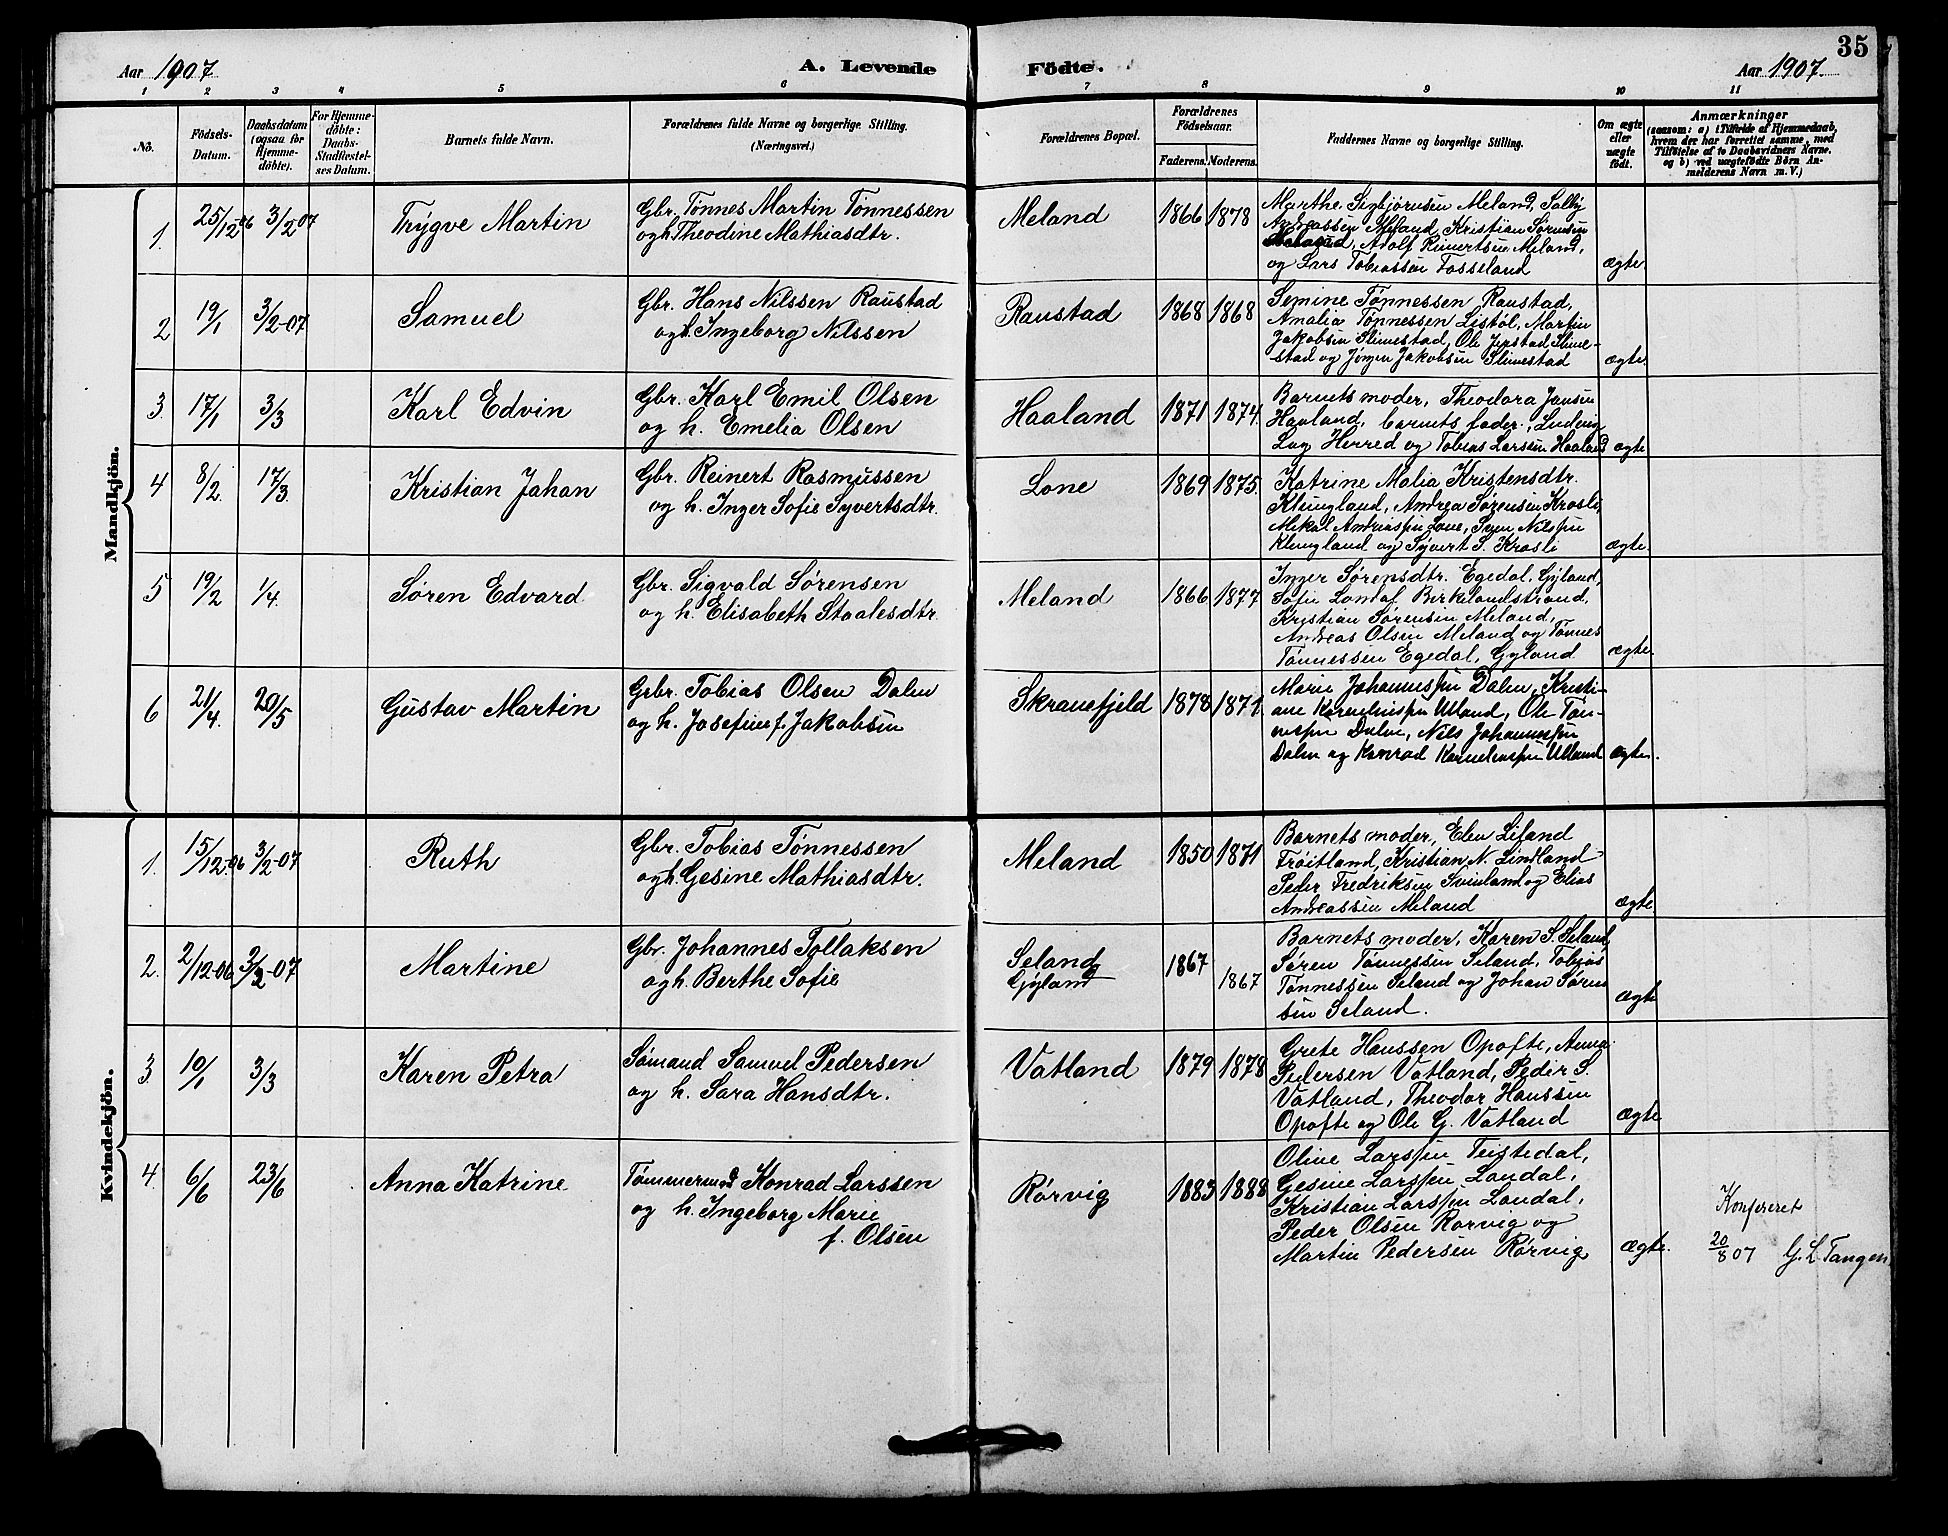 35
Aar 1907
A. Levende
Födte.
Aar 1907
1 2 3 4 5 6 7 8 9 10 11
No.
Födsels-
Datum.
Daabsdatum
(ogsaa for
Hjemme-
döbte).
For Hjemme-
döbte:
Daabs-
Stadfæstel-
ses Datum.
Barnets fulde Navn.
Forældrenes fulde Navne og borgerlige Stilling.
(Næringsvei.)
Forældrenes Bopæl.
Forældrenes
Födselsaar.
Faderens. Moderens.
Faddernes Navne og borgerlige Stilling.
Om ægte
eller
uægte
födt.
Anmærkninger
(saasom: a) i Tilfælde af Hjemmedaab,
hvem der har forrettet samme, med
Tilföielse af to Daabsvidners Navne.
og b) ved uægtefödte Börn An-
melderens Navn m. V.)
Mandkjön.
1. 25/12-06 3/2-07
Trygve Martin
Gbr. Tönnes Martin Tönnessen
og h. Theodine Mathiasdtr.
Meland
1866 1878
Marthe Sigbjörnsen Meland,
Andreassen Meland, Kristian Sörensen
Meland, Adolf Reinertsen Meland,
og Lars Tobiassen Fosseland
ægte.
2 19/1 3/2-07
Samuel
Gbr. Hans Nilssen Raustad
og h. Ingeborg Nilssen
Raustad
1868 1868
Semine Tönnessen Raustad,
Amalia Tönnessen Listöl, Martin
Jakobsen Slimestad, Ole Slime-
stad og Jörgen Jakobsen Slimestad
ægte.
3. 17/1 3/3
Karl Edvin
Gbr. Karl Emil Olsen
og h. Emelia Olsen
Haaland
1871 1874.
Barnets moder, Theodora Jansen
Haaland, barnets fader, Ludvig
Herred og Tobias Larsen Haaland
ægte
4 8/2. 17/3.
Kristian Johan
Gbr. Reinert Rasmussen
og h. Inger Sofie Syvertsdtr.
Lone
1869 1875.
Katrine Malia Kristensdtr.
Klungland, Andrea Sörensen Krosli,
Mikal Andreassen Lone, Sven Nilssen
Klungland og Syvert S. Krosli
ægte.
5 19/2 1/4.
Sören Edvard
Gbr. Sigvald Sörensen
og h. Elisabeth Staalesdtr.
Meland
1866 1877
Inger Sörensdtr. Egedal, Gyland,
Sofie Londal Birkelandstrand,
Kristian Sörensen Meland,
Andreas Olsen Meland og Tönnes
Tönnessen Egedal, Gyland
ægte.
6 21/4. 20/5
Gustav Martin
Grbr. Tobias Olsen Dalen
og h. Josefine f. Jakobsen
Skranefjeld
1878 1871
Marie Johannessen Dalen, Kristi-
ane Korneliussen Ulland, Ole Tön-
nessen Dalen, Nils Johannessen
Dalen og Konrad Korneliussen Ulland
ægte.
Kvindekjön.
1. 15/12-06 3/2-07
Ruth
Gbr. Tobias Tönnessen
og h. Gesine Mathiasdtr.
Meland
1850 1871
Barnets moder, Elen Liland
Tröitland, Kristian N. Lindland
Peder Fredriksen Svinland og Elias
Andreassen Meland
ægte
2. 2/12-06 3/2-07
Martine
Gbr. Johannes Tollaksen
og h. Berthe Sofie
Seland
Gyland
1867 1867
Barnets moder, Karen S. Seland,
Sören Tönnessen Seland, Tobias
Tönnessen Seland og Johan Sören
sen Seland.
ægte
3. 10/1 3/3
Karen Petra
Sömand Samuel Pedersen
og h. Sara Hansdtr.
Vatland
1879 1878
Grete Hanssen Opofte, Anna
Pedersen Vatland, Peder S.
Vatland, Theodor Hanssen
Opofte og Ole G. Vatland
ægte
4 6/6 23/6
Anna Katrine
Tömmermand Konrad Larssen
og h. Ingeborg Marie
f. Olsen
Rörvig
1883 1888
Oline Larssen Teistedal,
Gesine Larssen Londal,
Kristian Larssen Londal,
Peder Olsen Rörvig og
Martin Pedersen Rörvig
ægte.
Konfereret
20/8 07 G. L. Tangen